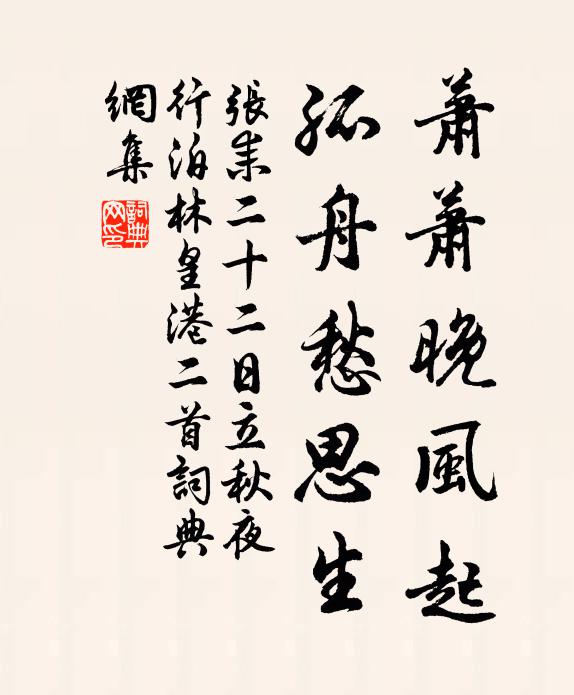 蕭蕭晚風起
孤舟愁思生
張耒二十二日立秋夜
行泊林皇港二首詞典
網集
詞典網印